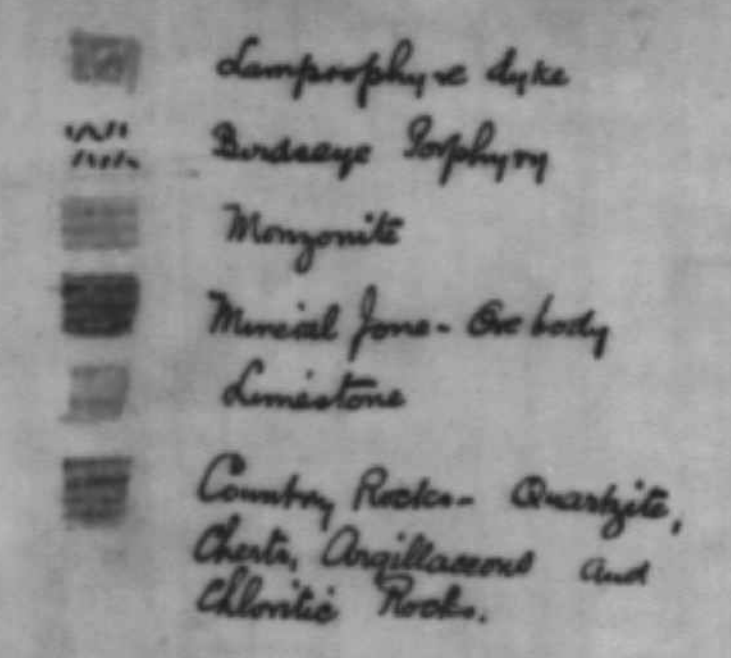 Lamprophyre dyke
Birdseye Porphyry
Monzonite
Mineral Zone - Ore body
Limestone
Country Rocks - Quartzite,
Cherts, Argillaceous and
Chloritic Rocks.